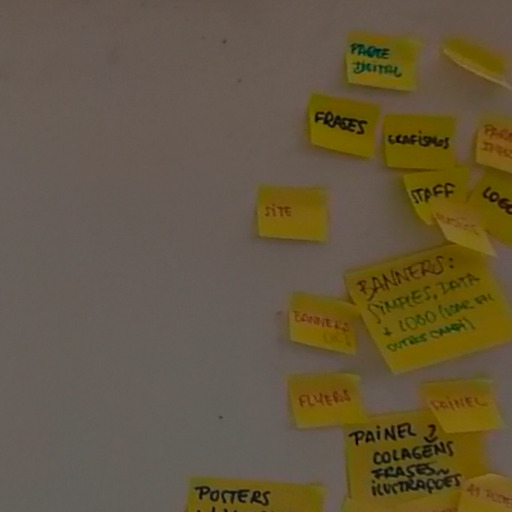 PARTE
DIGITAL
FRASES
GRAFISMOS
STAFF
LOGO
SITE
BANNERS:
SIMPLES, DATA
+ LOGO (USAR EM
OUTROS CAMPI)
BANNERS
FLYERS
PAINEL
PAINEL?
COLAGENS
FRASES
ILUSTRAÇÕES
POSTERS